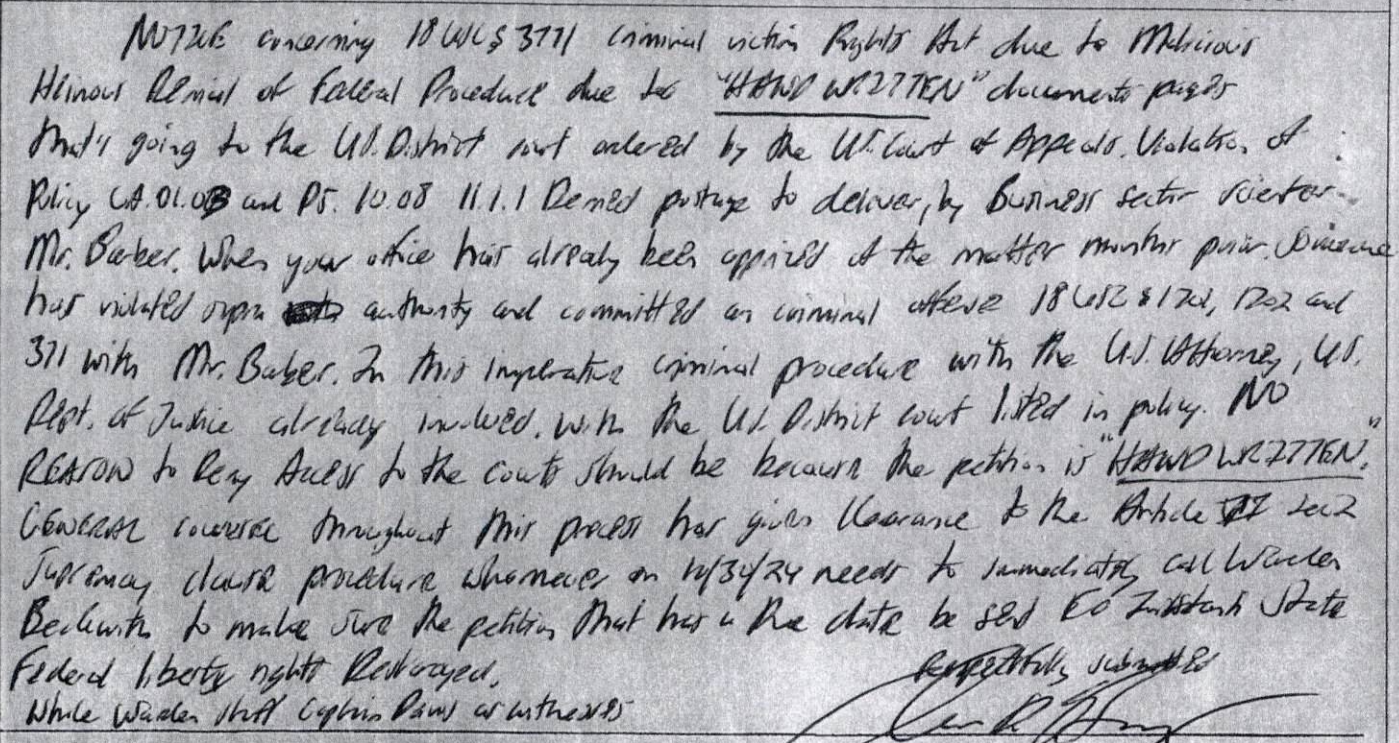 NOTICE concerning 18 USC § 3771 criminal victim Rights Act due to Malicious
Heinous Denial of Federal Procedure due to "HAND WRITTEN" documents pages
that's going to the U.S. District court ordered by the U.S. Court of Appeals. Violation of
Policy CA.01.03 and PS. 10.08 11.1.1 Denied postage to deliver, by Business sector
Mr. Barber. When your office has already been apprized of the matter prior. Someone
has violated authority and committed an criminal offense 18 USC § 1701, 1702 and
371 with Mr. Barber. In this imperative criminal procedure with the U.S. Attorney, U.S.
Dept. of Justice already involved. with the U.S. District court listed in policy. NO
REASON to Deny Access to the courts should be because the petition is "HAND WRITTEN."
GENERAL throughout this process has given Clearance to the Article
Supremacy clause procedure whomever on 10/30/24 needs to immediately call Warden
Beckwith to make sure the petition that has a due date be sent State
Federal liberty rights
While Warden staff Captain Davis as witnesses
Respectfully submitted